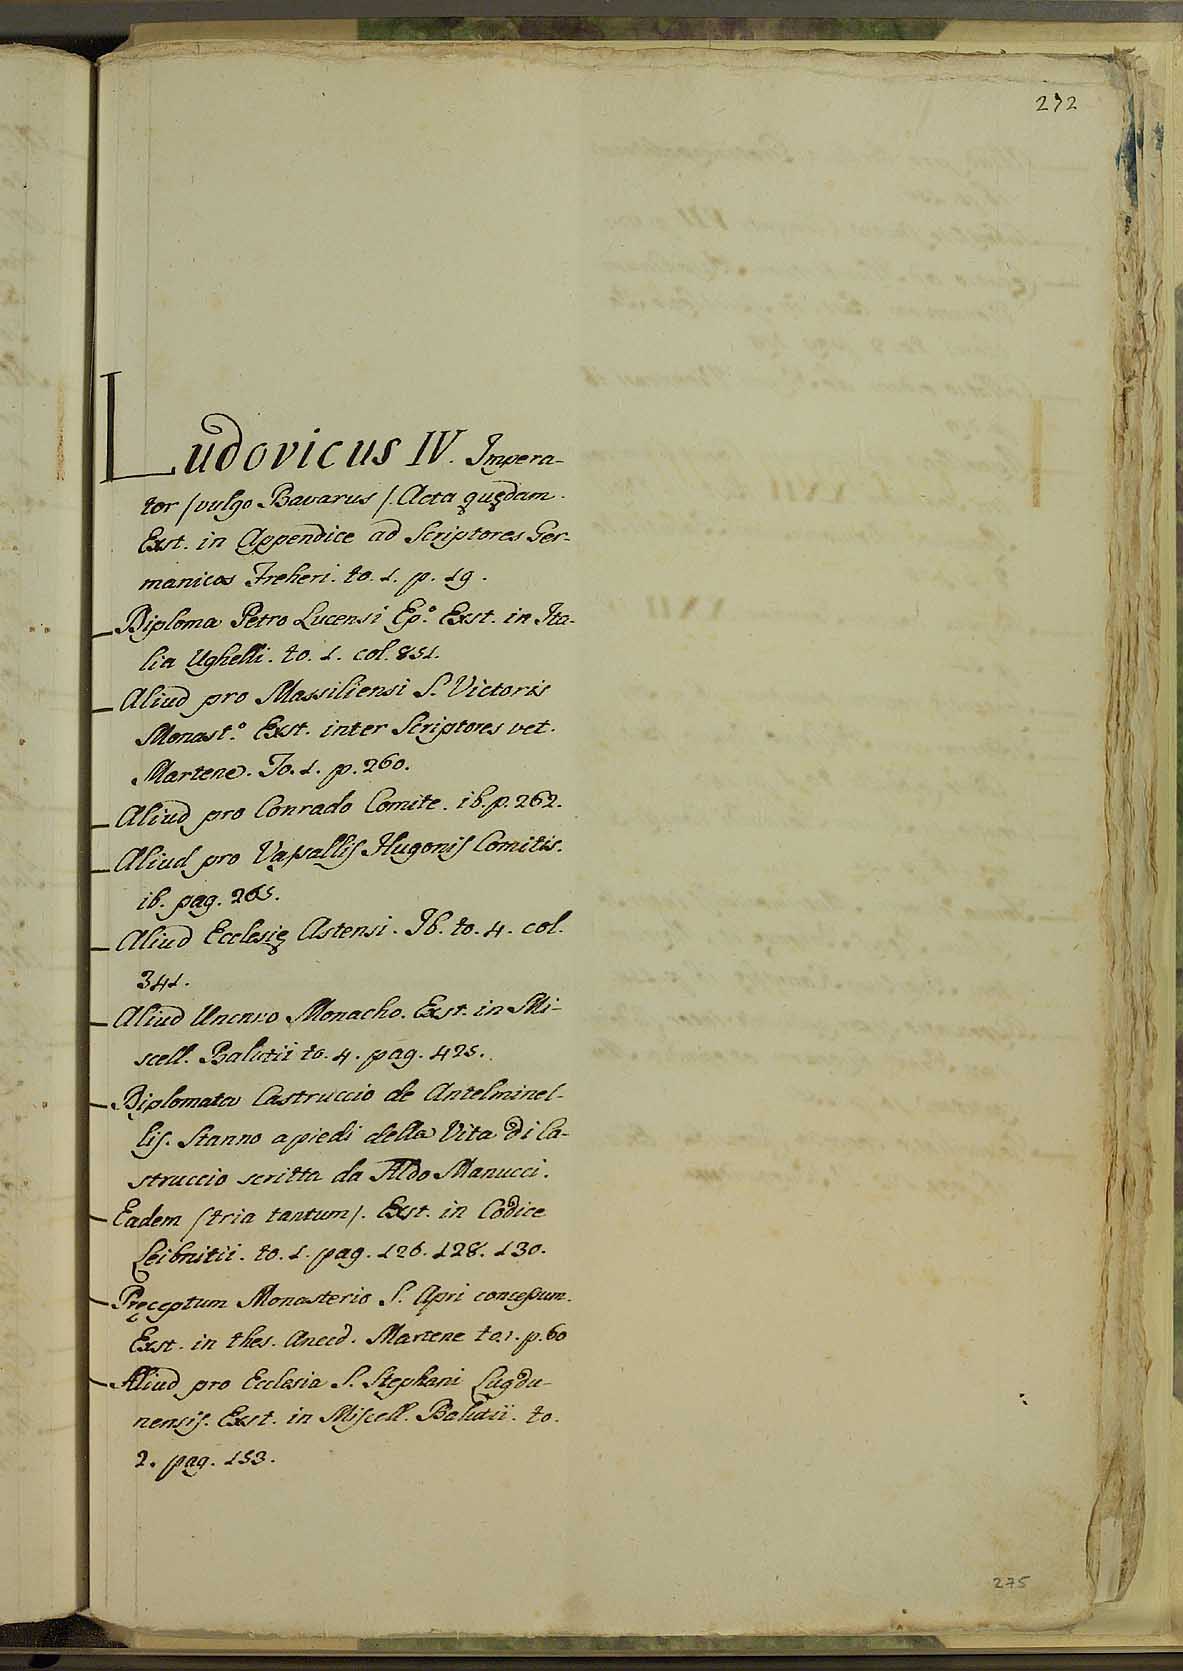 272
Ludovicus IV. Impera-
tor /vulgo Bavarus/. Acta quędam.
Exst. in Appendice ad Scriptores Ger-
manicos Freheri. to. 1. p. 19.
Diploma Petro Lucensi Ep.º Exst. in Ita-
lia Ughelli. to. 1. col. 851.
Aliud pro Massiliensi S. Victoris
Monast.º Exst. inter Scriptores vet.
Martene. To. 1. p. 260.
Aliud pro Conrado Comite. ib. p. 262.
Aliud pro Vassallis Hugonis Comitis.
ib. pag. 265.
Aliud Ecclesię Astensi. Ib. to. 4. col.
341.
Aliud Monacho. Exst. in Mi-
scell. Balutii to. 4. pag. 425.
Diplomata Castruccio de Antelminel-
lis. Stanno a piedi della Vita di Ca-
struccio scritta da Aldo Manucci.
Eadem /tria tantum/. Exst. in Codice
Leibnitii. to. 1. pag. 126. 128. 130.
Pręceptum Monasterio S. Apri concessum.
Exst. in thes. Anecd. Martene to. 1. p. 60
Aliud pro Ecclesia S. Stephani Lugdu-
nensis. Exst. in Miscell. Balutii. to.
2. pag. 153.
275